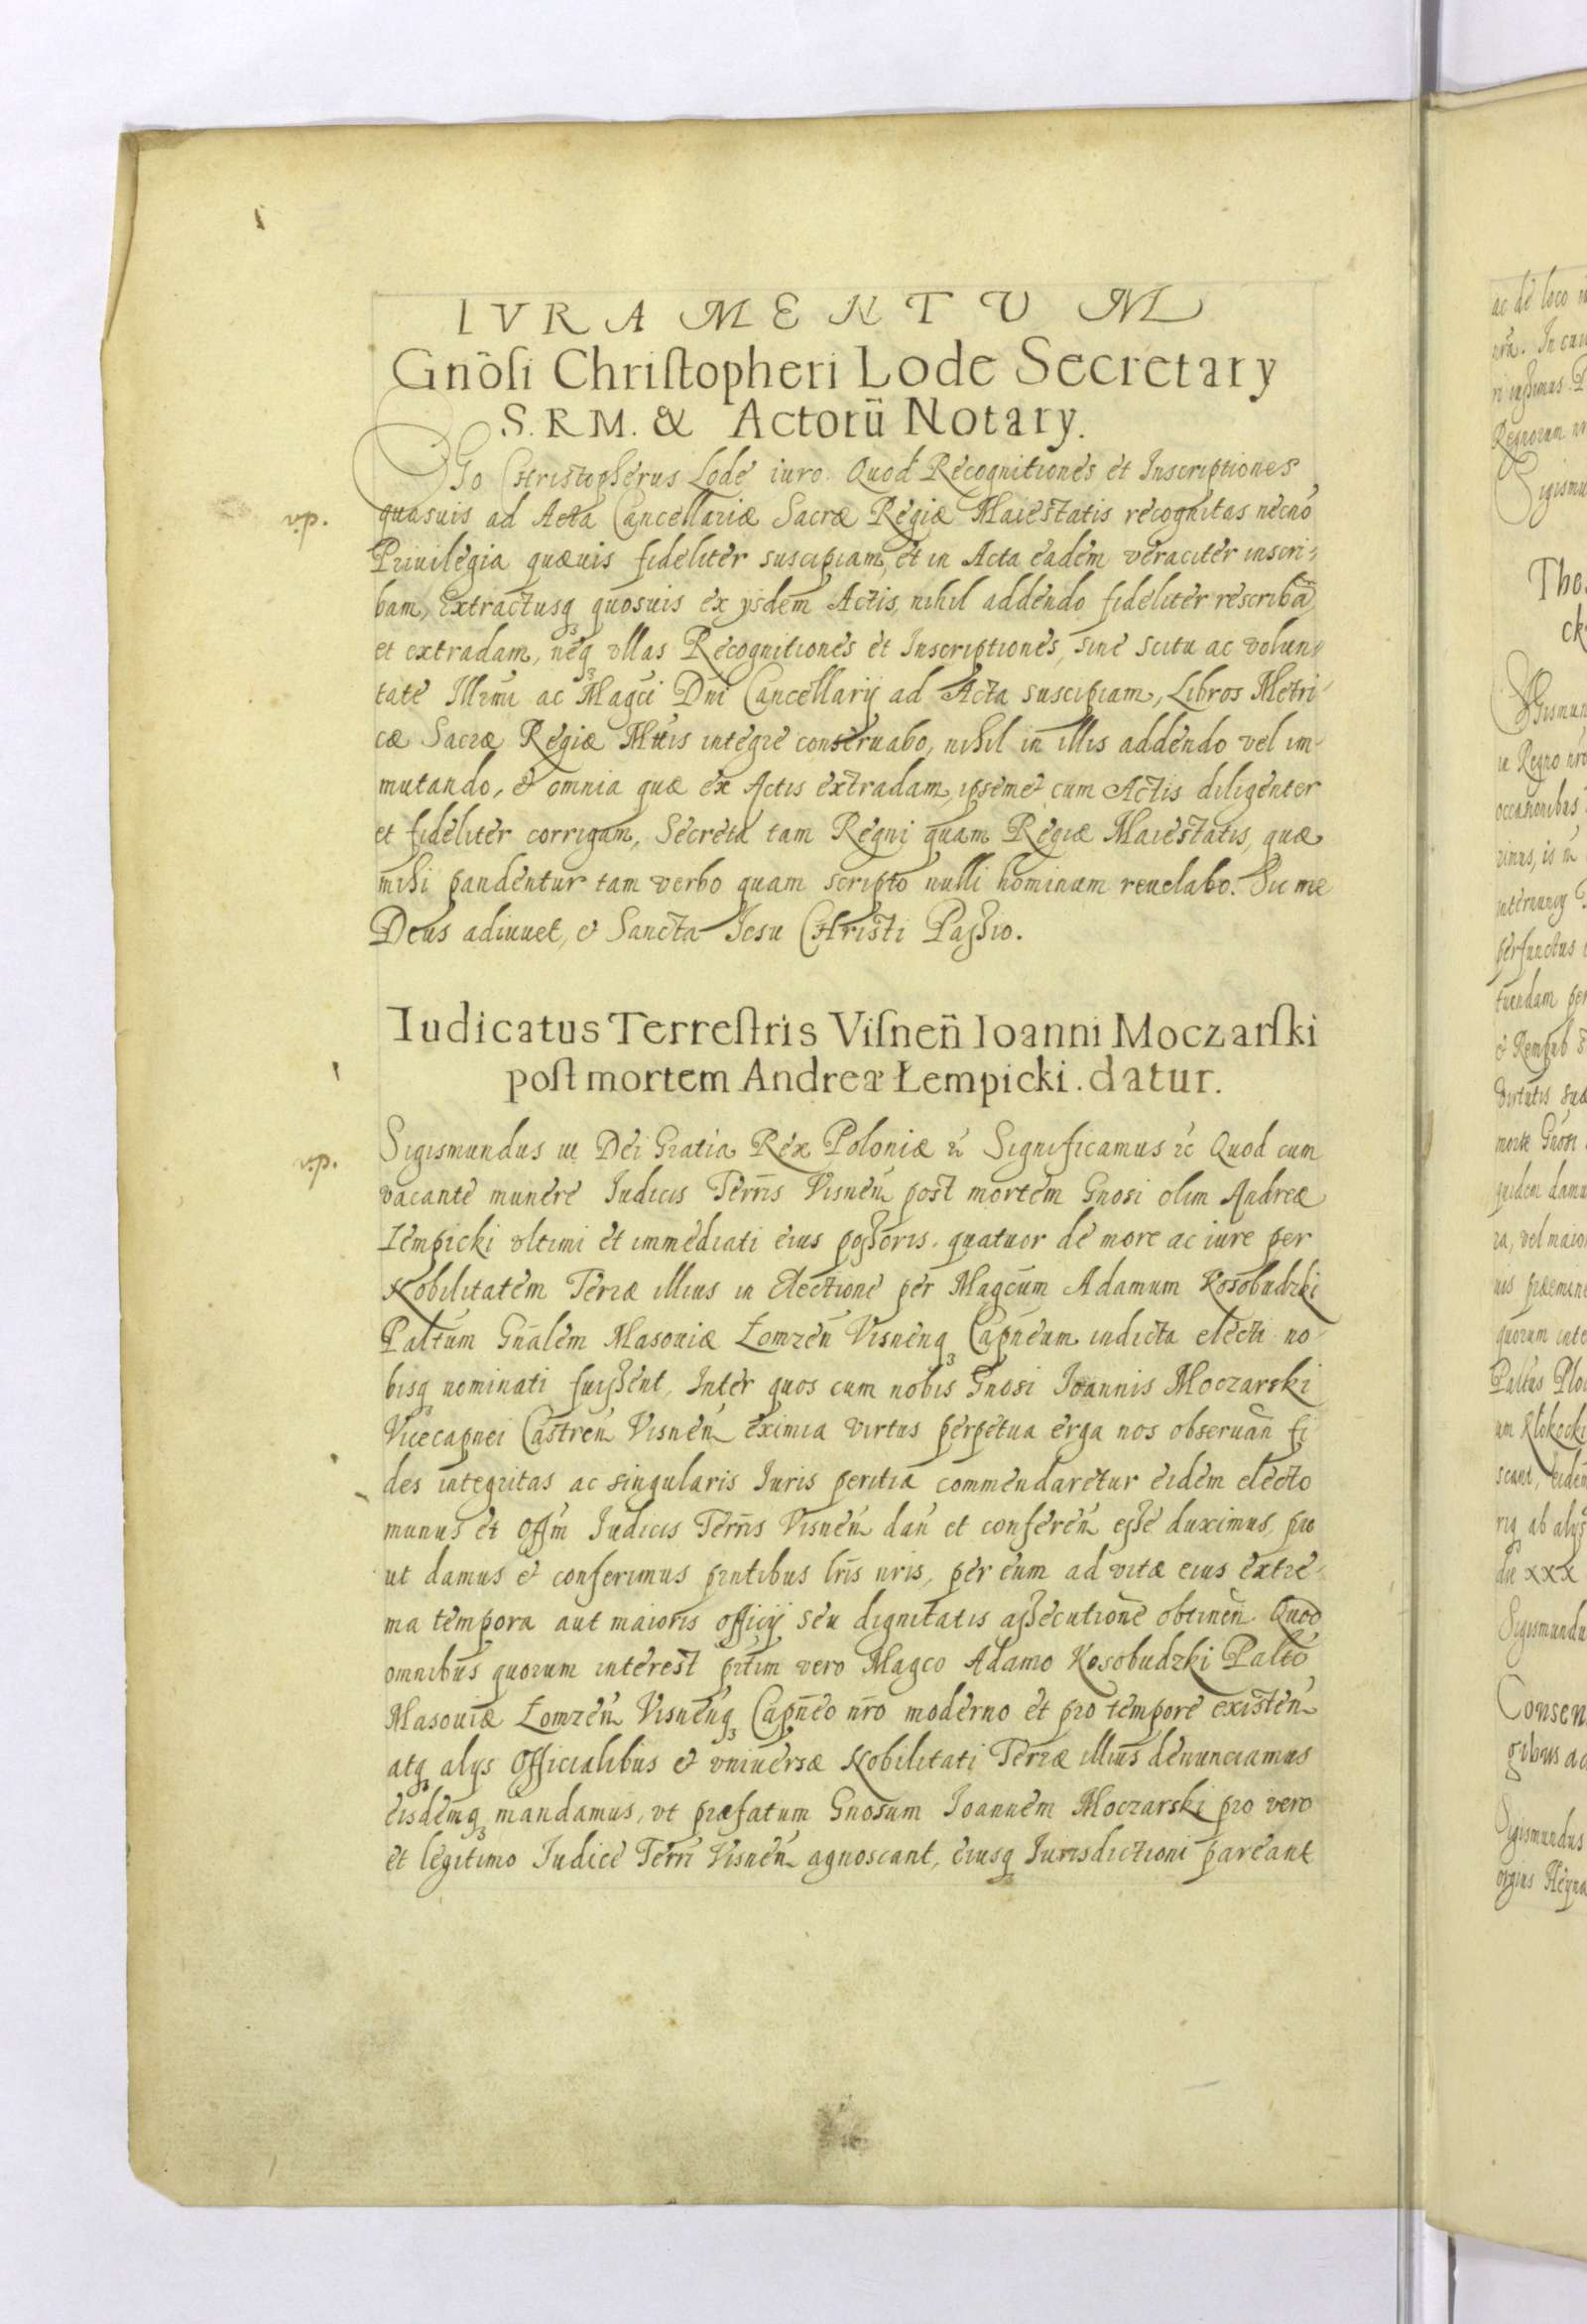 IVRAMENTVM
Gnõsi Christopheri Lode Secretary
S. R M. & Actorũ Notary.
EGo Christopherus Lode iuro. Quod Recognitiones et Inscriptiones
vp. quasuis ad Acta Cancellariæ Sacræ Regiæ Maiestatis recognitas necnõ
Priuilegia quæuis fideliter suscipiam, et in Acta eadem veraciter inscri-
bam, Extractusq3 quosuis ex ijsdem Actis, nihil addendo fideliter rescribã
et extradam, neq3 vllas Recognitiones et Inscriptiones, sine scitu ac volun-
tate Illrmi ac Magci Dni Cancellarij ad Acta suscipiam, Libros Metri-
cæ Sacræ Regiæ Mttis integre conseruabo, nihil in illis addendo vel im-
mutando, & omnia quæ ex Actis extradam, ipsemet cum Actis diligenter
et fideliter corrigam, Secreta tam Regni quam Regiæ Maiestatis, quæ
mihi pandentur tam verbo quam scripto nulli hominum reuelabo. Sic me
Deus adiuuet, & Sancta Jesu Christi Passio.
Iudicatus Terrestris Visneñ Ioanni Moczarski
post mortem Andreæ Łempicki. datur.
vp. Sigismundus III Dei Gratia Rex Poloniæ &c Significamus &c Quod cum
vacante munere Iudicis Terrñs Visneñ post mortem Gnosi olim Andreæ
Lempicki vltimi et immediati eius possoris. quatuor de more ac iure per
Nobilitatem Terræ illius in Electione per Magcum Adamum Kosobudzki
Paltum Gnalem Masouiæ Łomzeñ Visnenq3 Capneum indicta electi no-
bisq3 nominati fuissent, Inter quos cum nobis Gnosi Joannis Moczarski
Vicecapnei Castreñ Visneñ eximia virtus perpetua erga nos obseruañ fi
des integritas ac singularis Iuris peritia commendaretur eidem electo
munus et Offm Iudicis Terrñs Visneñ dañ et confereñ esse duximus, pro
ut damus & conferimus pntibus lris nris, per eum ad vitæ eius extre-
ma tempora aut maioris officij seu dignitatis assecutione obtineñ. Quod
omnibus quorum interest prtim vero Magco Adamo Kosobudzki Palto
Masouiæ Łomzeñ Visnenq3 Capneo nro moderno et pro tempore existeñ
atq3 alys Officialibus & vniuersæ Nobilitati Terræ illius denunciamus
eisdemq3 mandamus, vt præfatum Gnosum Joannem Moczarski pro vero
et legitimo Iudice Terri Visneñ agnoscant, eiusq3 Iurisdictioni pareant